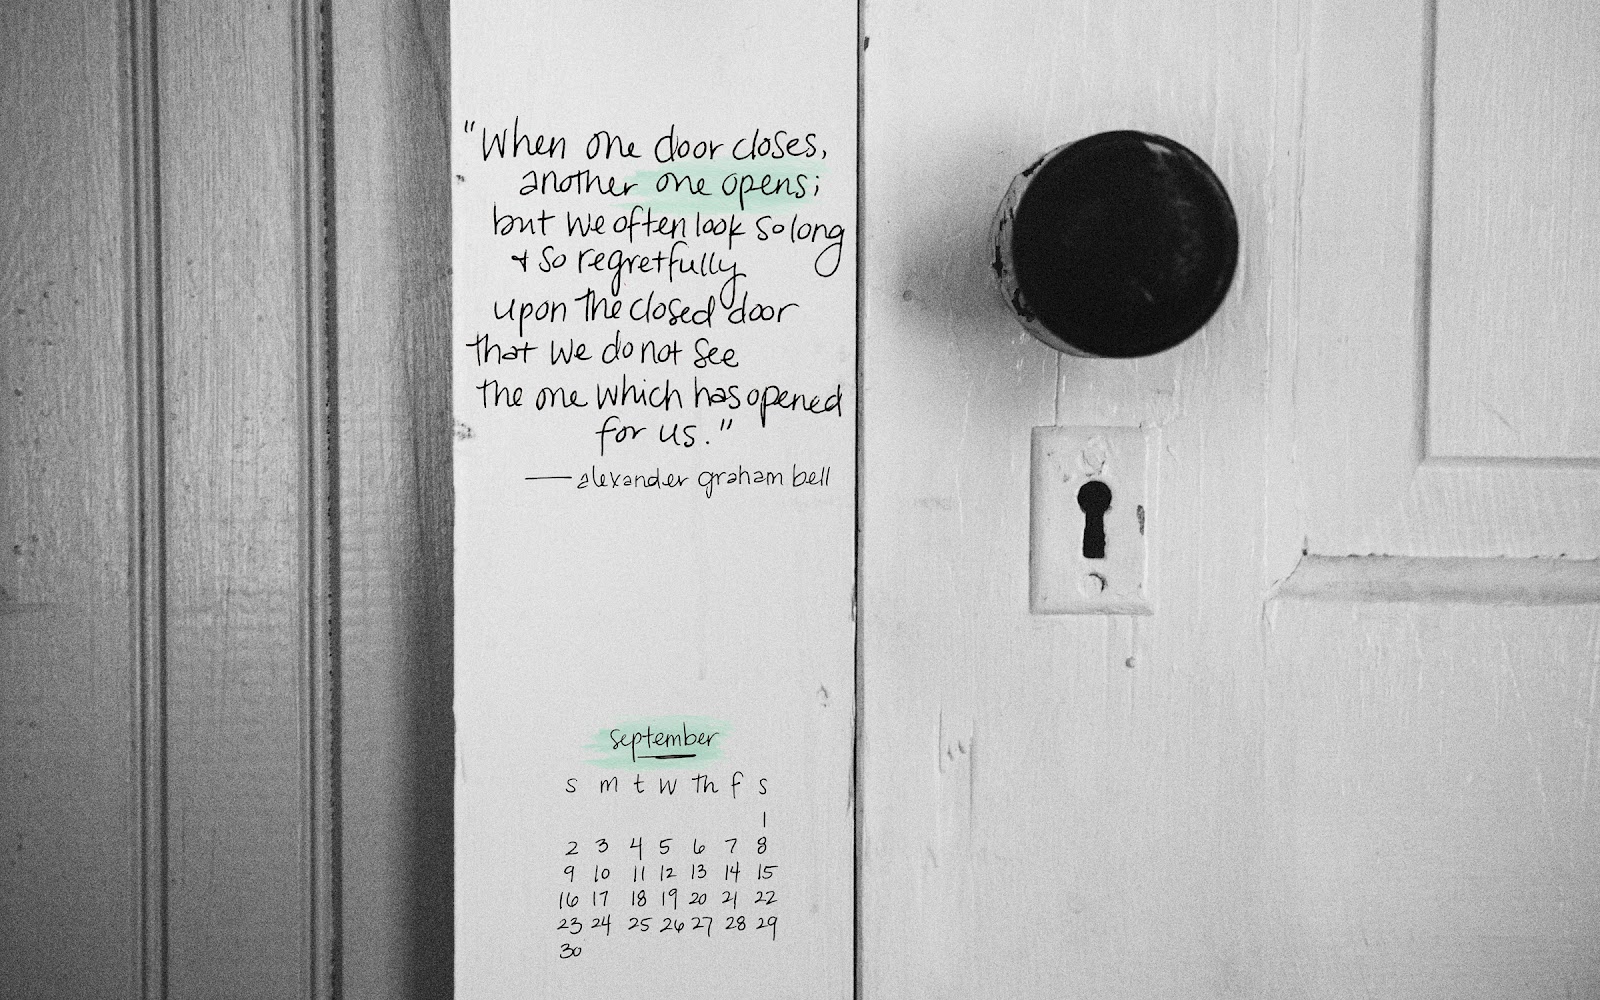 "When one door closes,
another one opens;
but we often look so long
+ so regretfully
upon the closed door
that we do not see
the one which has opened
for us."
— alexander graham bell
september
s m t w th f s
1
2 3 4 5 6 7 8
9 10 11 12 13 14 15
16 17 18 19 20 21 22
23 24 25 26 27 28 29
30